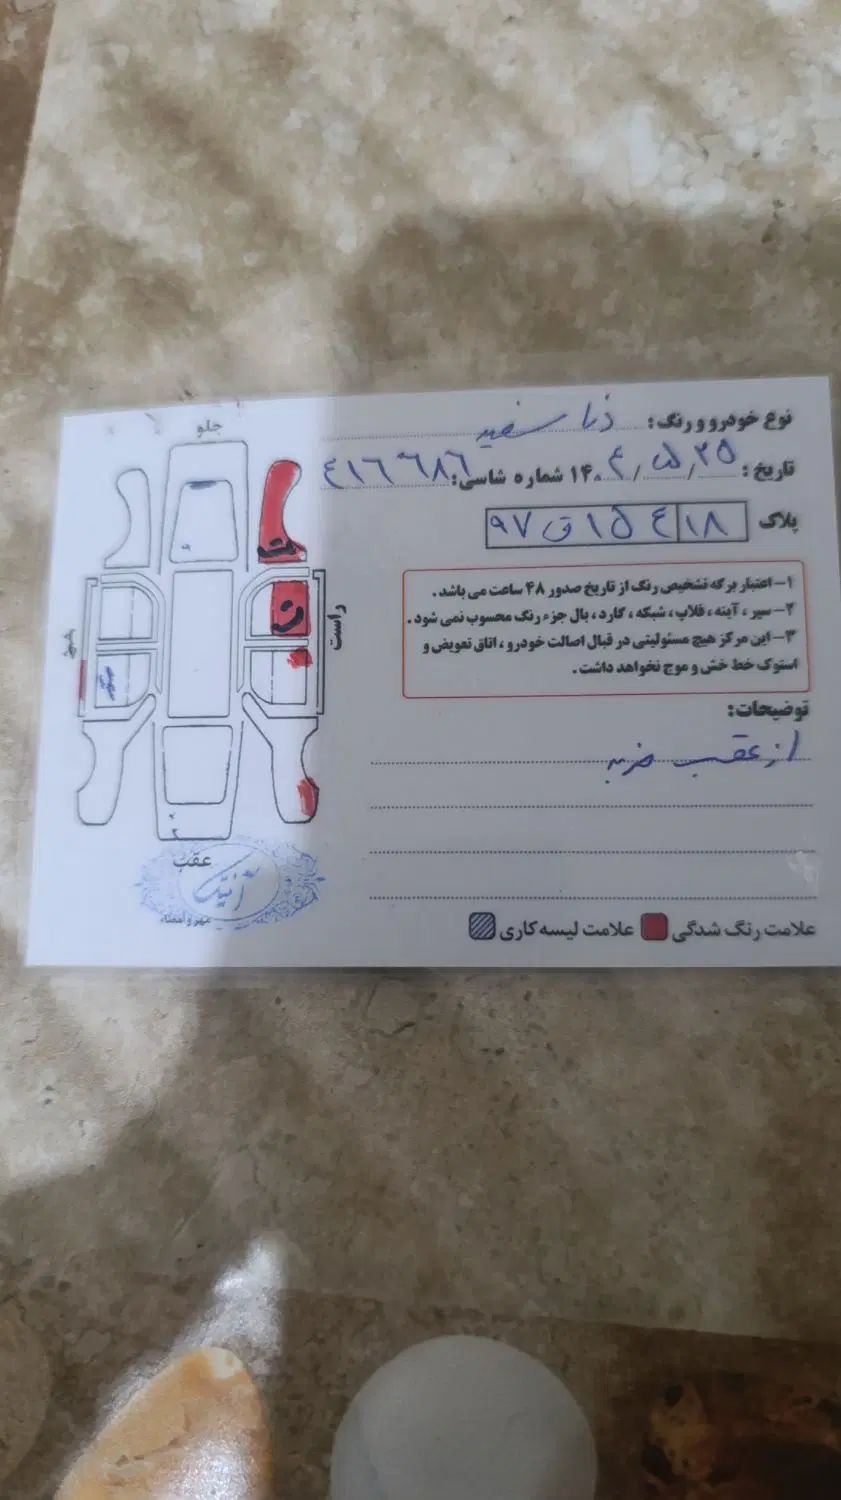 نوع خودرو و رنگ: زنا سفید
تاریخ: ۲۵/۵/۱۴۰۴ شماره شاسی: ۴۱۶۶۸۶
پلاک ۱۸ ۹۷ق۱۵۴
۱- اعتبار برگه تشخیص رنگ از تاریخ صدور ۴۸ ساعت می باشد.
۲- سپر، آینه، قلاپ، شبکه، گارد، بال جزء رنگ محسوب نمی شود.
۳- این مرکز هیچ مسئولیتی در قبال اصالت خودرو، اتاق تعویض و
استوک خط خش و موج نخواهد داشت.
توضیحات:
از عقب ضربه
علامت رنگ شدگی علامت لیسه کاری
جلو
راست
چپ
ت
ن
عقب
آنتیک
مهر و امضاء